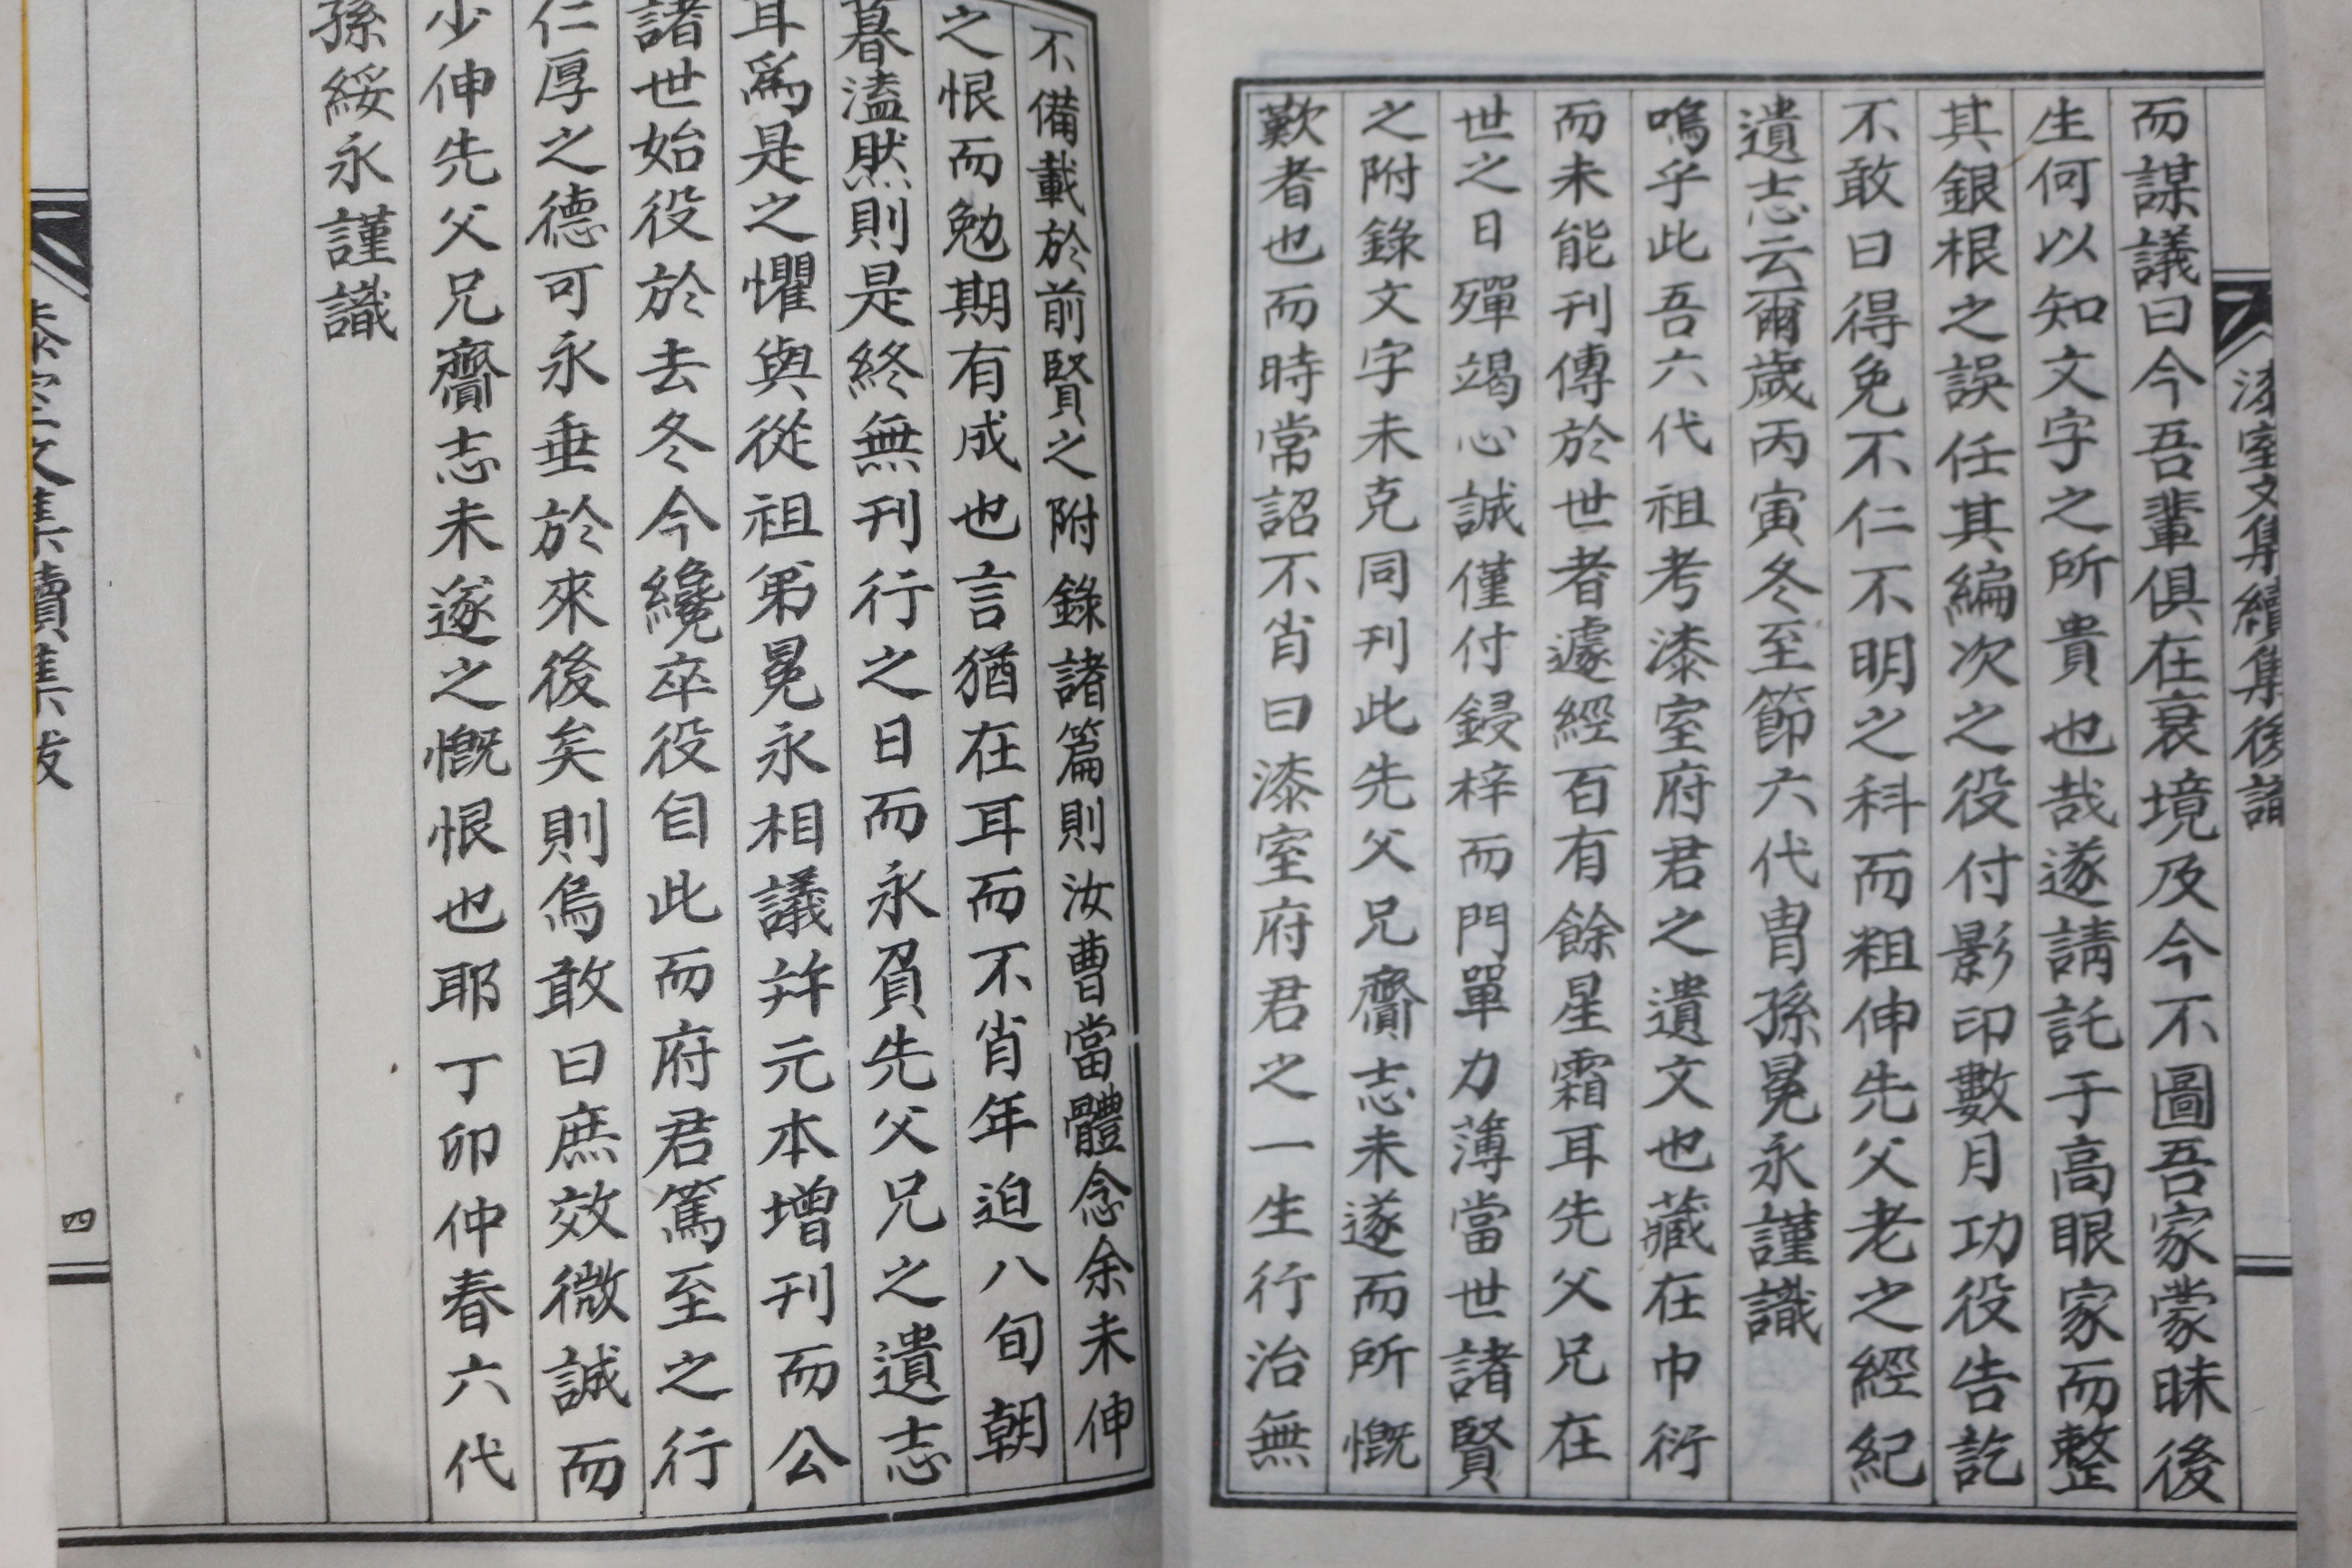 漆室文集續集後識
而謀議曰今吾輩俱在衰境及今不圖吾家蒙昧後
生何以知文字之所貴也哉遂請託于高眼家而整
其銀根之誤任其編次之役付影印數月功役告訖
不敢曰得免不仁不明之科而粗伸先父老之經紀
遺志云爾歲丙寅冬至節六代胄孫冕永謹識
嗚乎此吾六代祖考漆室府君之遺文也藏在巾衍
而未能刊傳於世者遽經百有餘星霜耳先父兄在
世之日殫竭心誠僅付鋟梓而門單力薄當世諸賢
之附錄文字未克同刊此先父兄齎志未遂而所慨
歎者也而時常詔不肖曰漆室府君之一生行治無
不備載於前賢之附錄諸篇則汝曹當體念余未伸
之恨而勉期有成也言猶在耳而不肖年迫八旬朝
暮溘然則是終無刊行之日而永負先父兄之遺志
耳爲是之懼與從祖弟冕永相議幷元本增刊而公
諸世始役於去冬今纔卒役自此而府君篤至之行
仁厚之德可永垂於來後矣則烏敢曰庶效微誠而
少伸先父兄齎志未遂之慨恨也耶丁卯仲春六代
孫綏永謹識
漆室文集續集跋
四